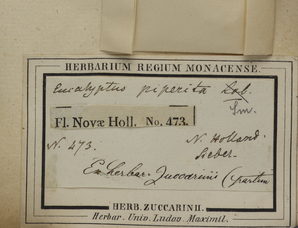 HERBARIUM REGIUM MONACENSE.
Eucalyptus piperita
Sm.
Fl. Novæ Holl. No. 473.
N. 473. N. Holland.
Sieber.
Ex herbar. Zuccarinii (partim
HERB. ZUCCARINII.
Herbar. Univ. Ludov. Maximil.